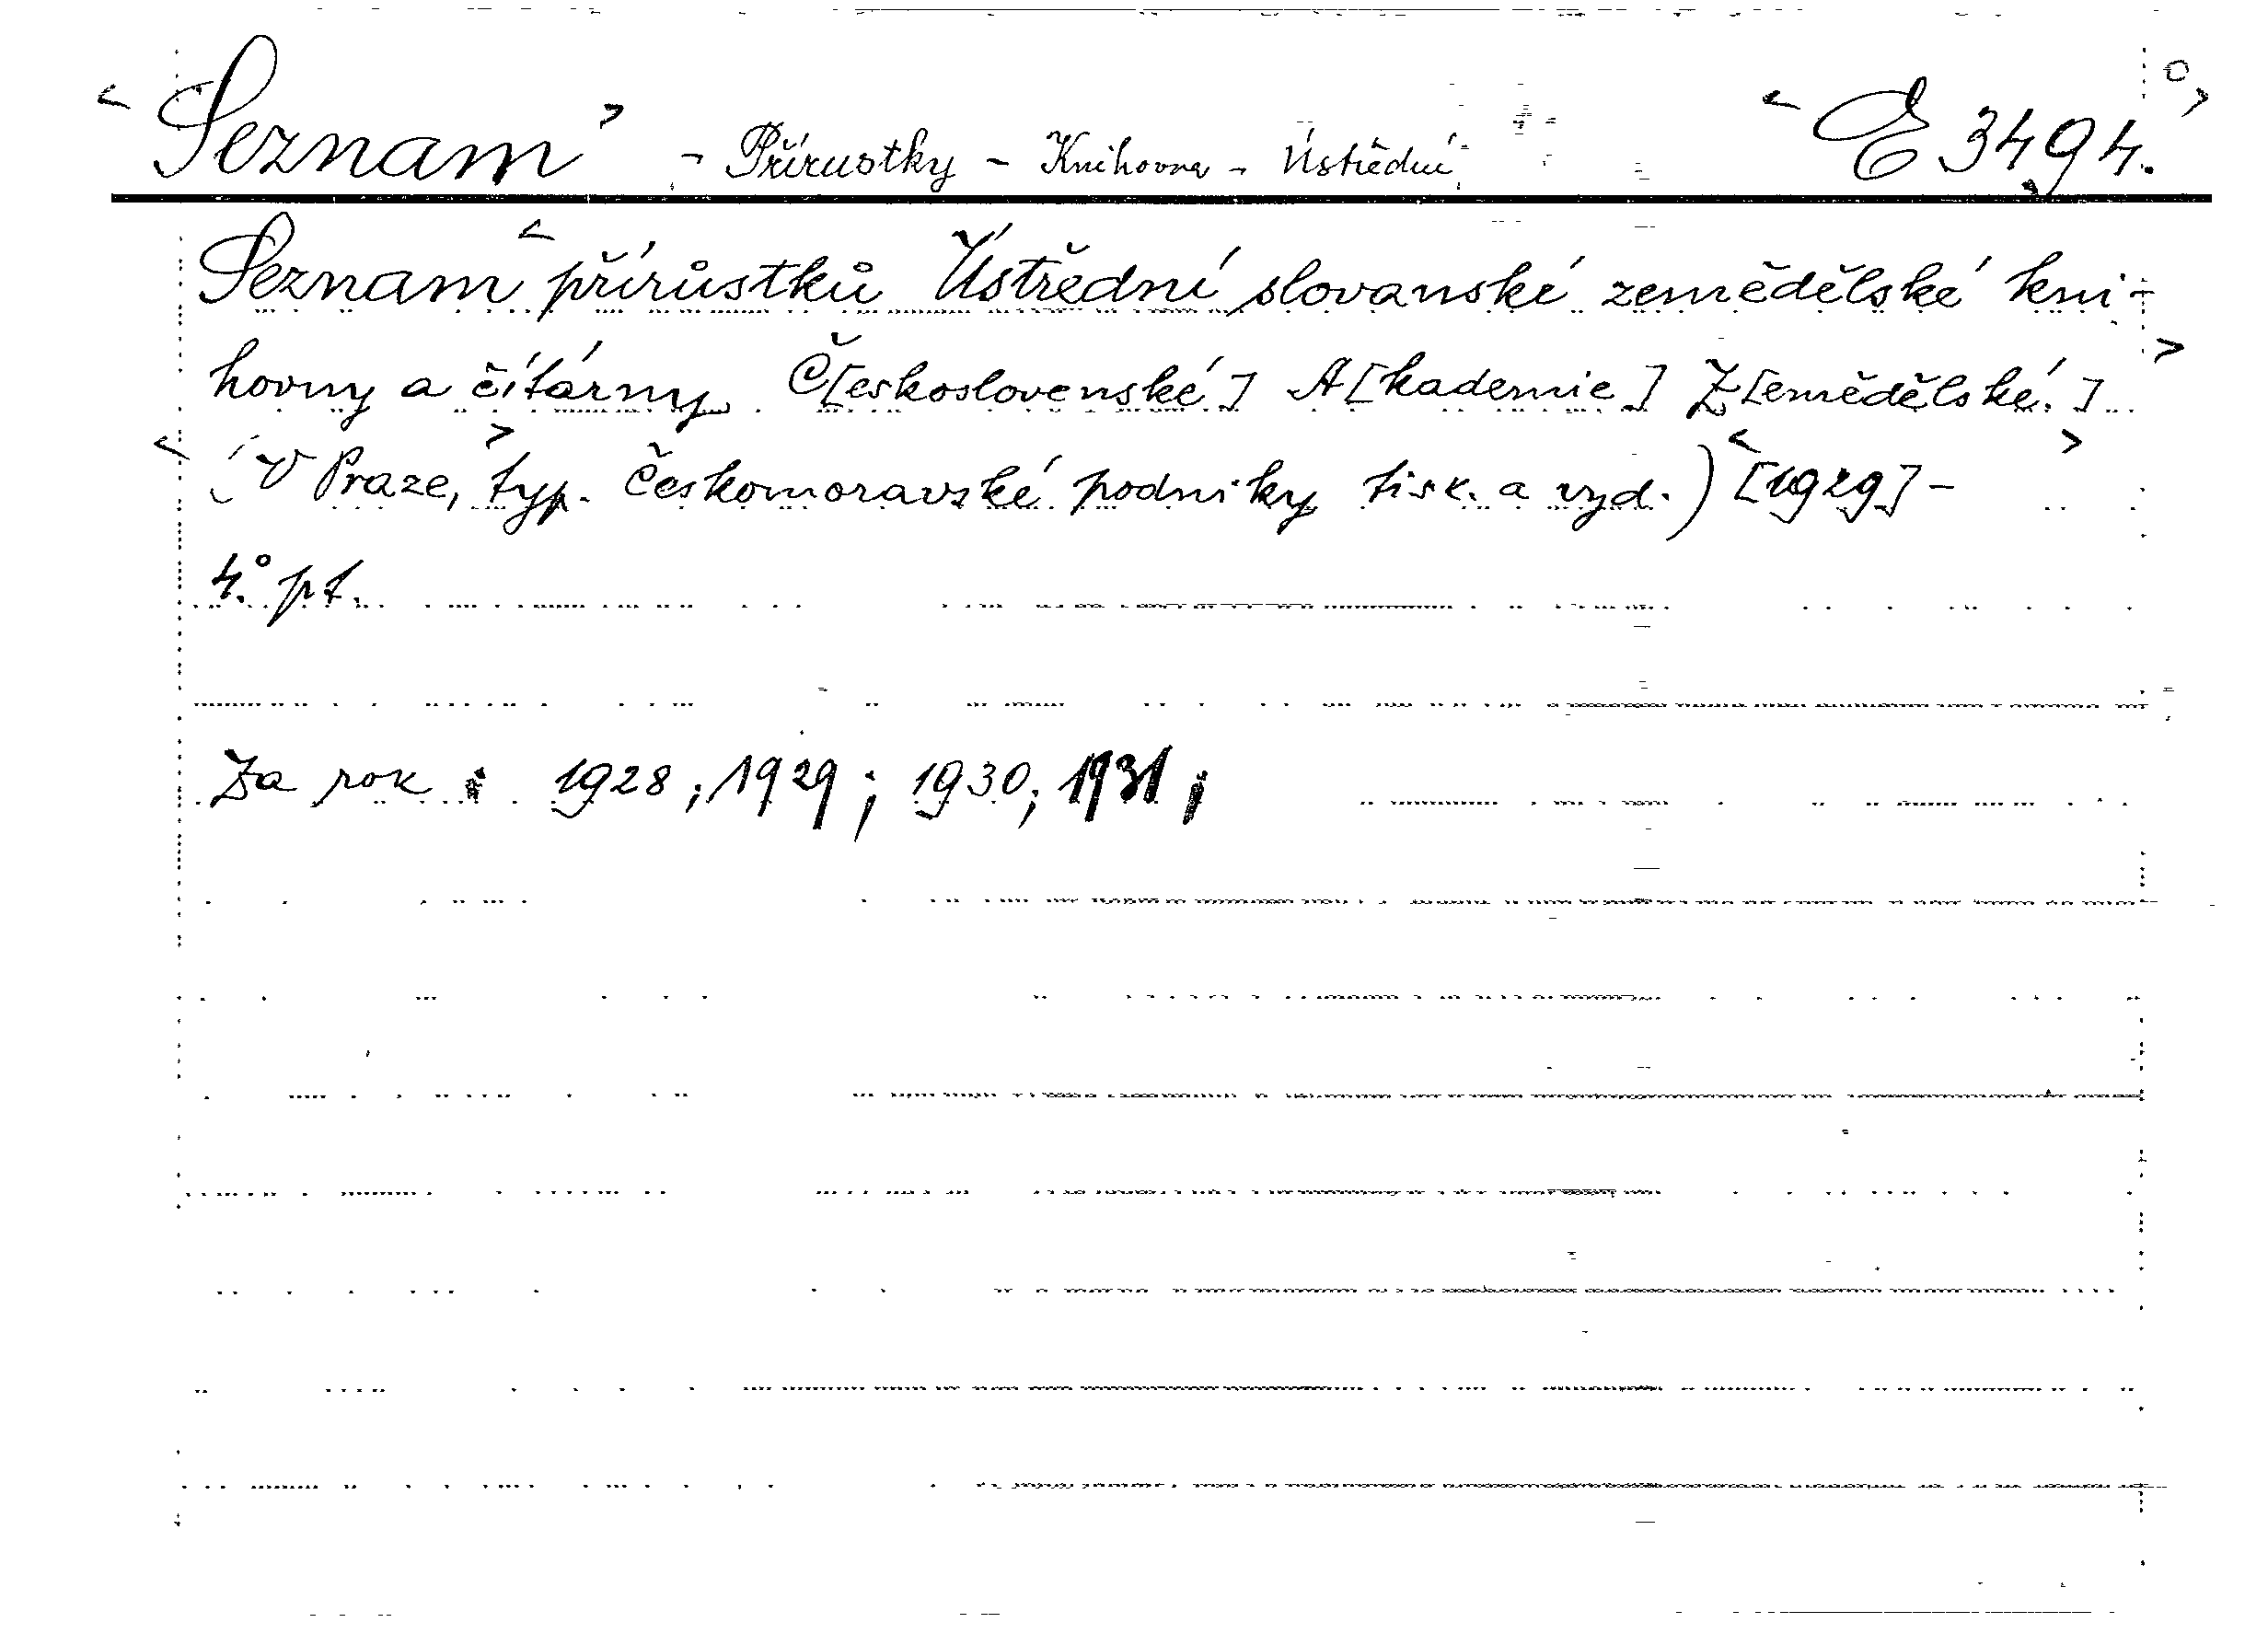 Seznam - Přírustky - Knihovna - Ústřední E 3494.
Seznam přírůstků Ústřední slovanské zemědělské kni-
hovny a čítárny Č[eskoslovenské] A[kademie] Z[emědělské.]
(V Praze, typ. Českomoravské podniky tisk. a vyd.) [1929] -
4.° pt.
Za rok : 1928; 1929; 1930; 1931;